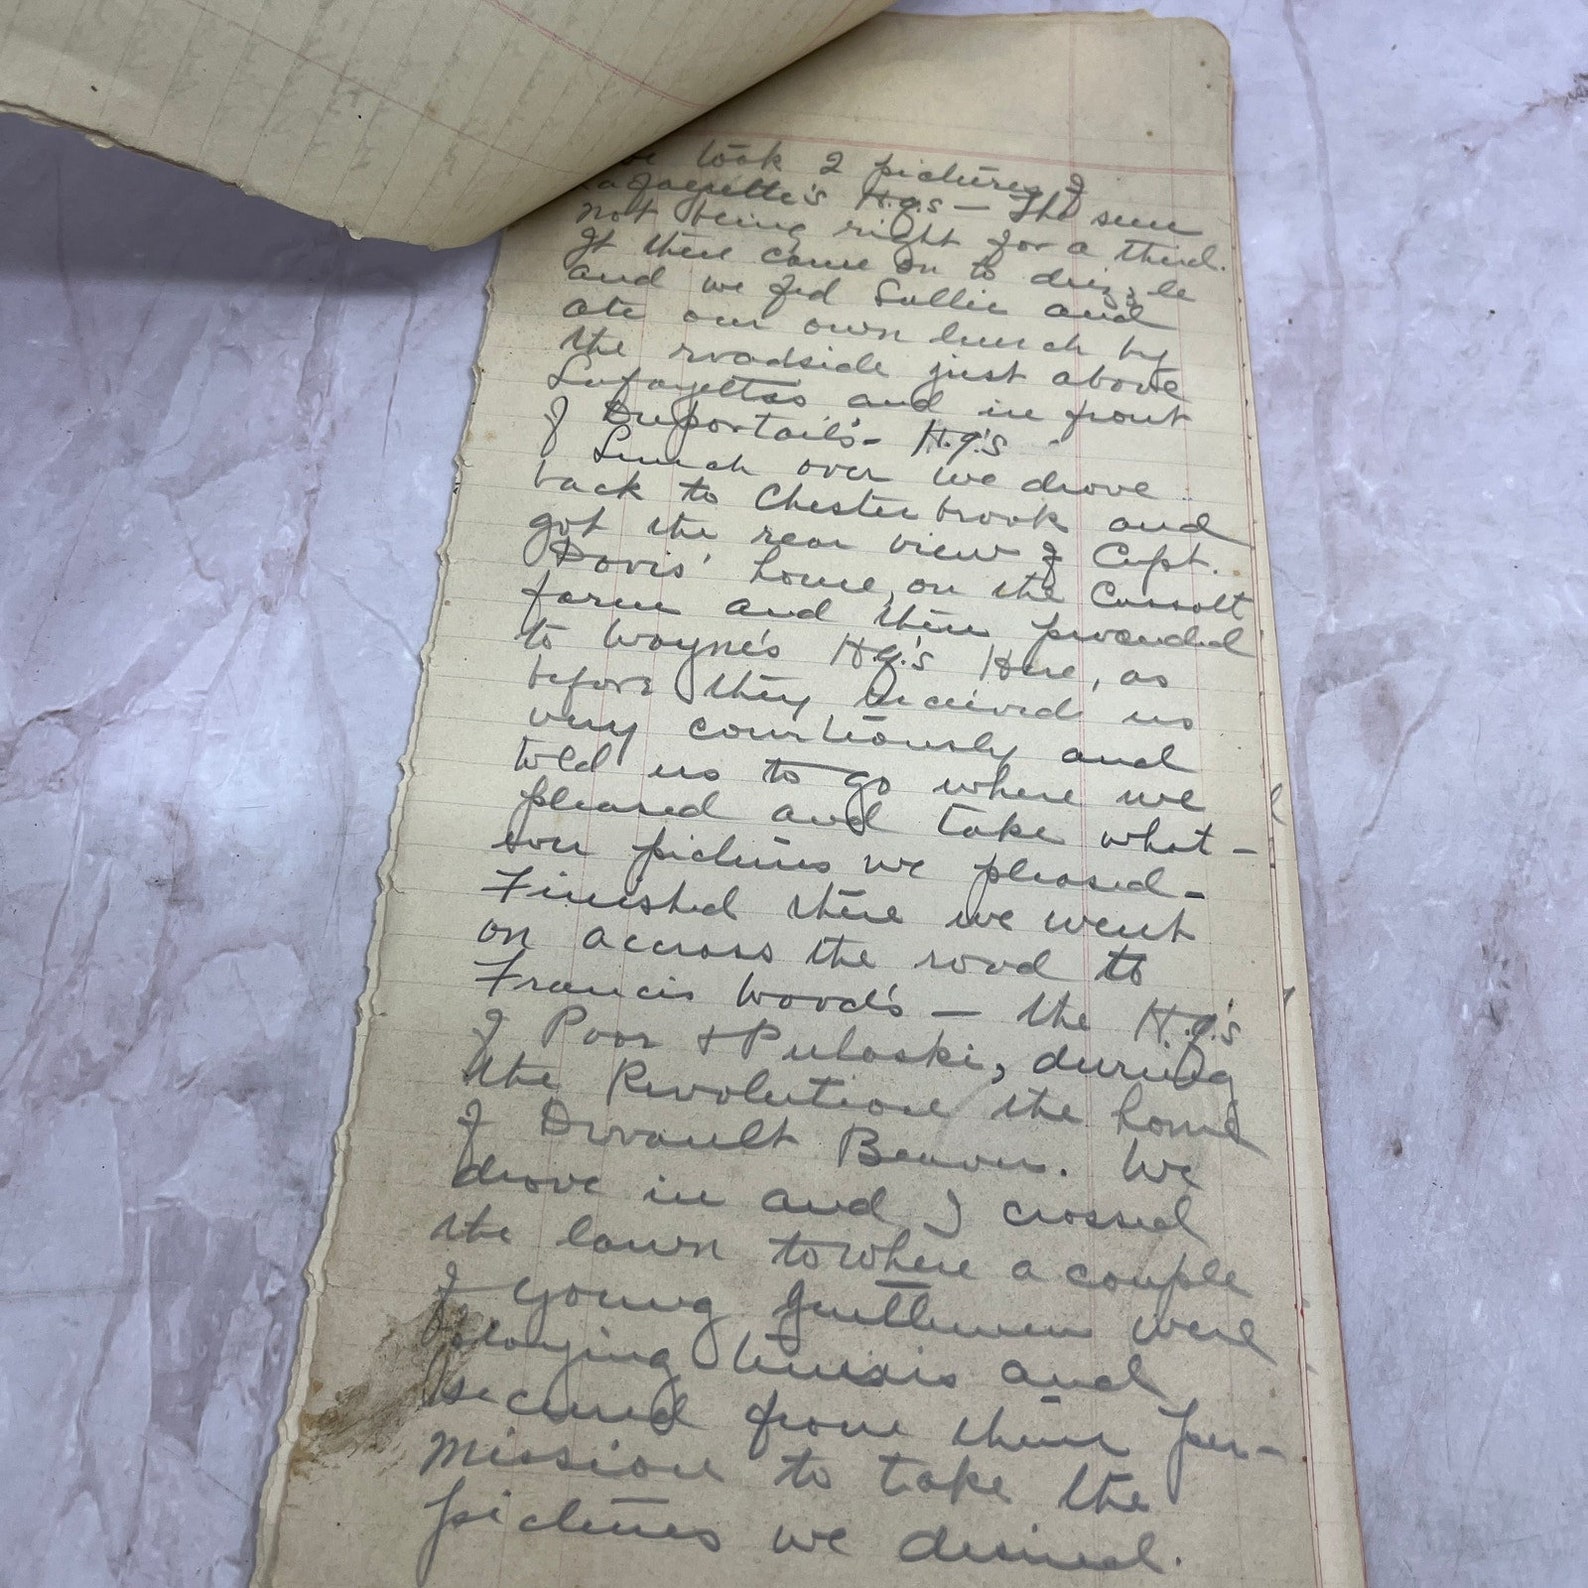 we took 2 pictures of
Lafayette's H.q.s — The sun
not being right for a third.
It there came on to drizzle
and we fed Sallie and
ate our own lunch by
the roadside just above
Lafayette's and in front
of Duportail's - H.q.'s
Lunch over we drove
back to Chesterbrook and
got the rear view of Capt.
Davis' home, on the Cassatt
farm and then proceeded
to Wayne's H.q.'s Here, as
before they received us
very courteously and
told us to go where we
pleased and take what-
ever pictures we pleased -
Finished there we went
on accross the road to
Francis Wood's — the H.q.'s
of Poor & Pulaski, during
the Revolution the home
of Devault Beaver. We
drove in and I crossed
the lawn to where a couple
of young gentlemen were
playing tennis and
secured from them per-
mission to take the
pictures we desired.